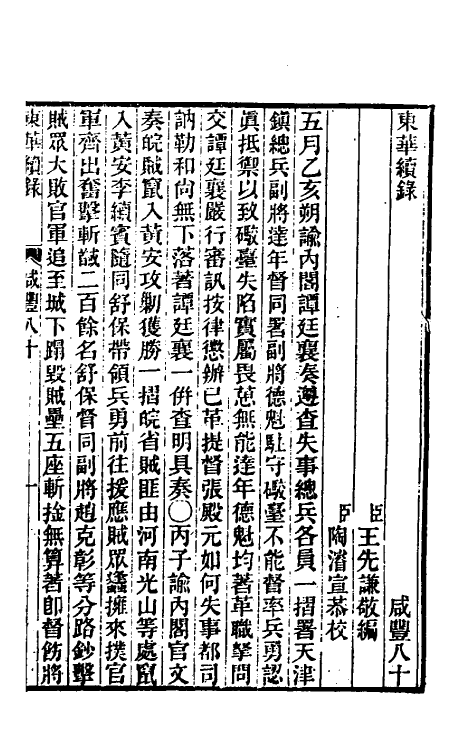 東華續錄 咸豐八十
臣王先謙敬編
臣陶濬宣恭校
五月乙亥朔諭內閣譚廷襄奏遵查失事總兵各員一摺署天津
鎮總兵副將達年督同署副將德魁駐守礮臺不能督率兵勇認
眞抵禦以致礮臺失陷實屬畏葸無能達年德魁均著革職拏問
交譚廷襄嚴行審訊按律懲辦已革提督張殿元如何失事都司
訥勒和尚無下落著譚廷襄一併查明具奏〇丙子諭內閣官文
奏皖賊竄入黃安攻勦獲勝一摺皖省賊匪由河南光山等處竄
入黃安李續賓隨同舒保帶領兵勇前往援應賊眾蠭擁來撲官
軍齊出奮擊斬馘二百餘名舒保督同副將趙克彰等分路鈔擊
賊眾大敗官軍追至城下蹋毀賊壘五座斬捡無算著卽督飭將
東華續錄 咸豐八十 一